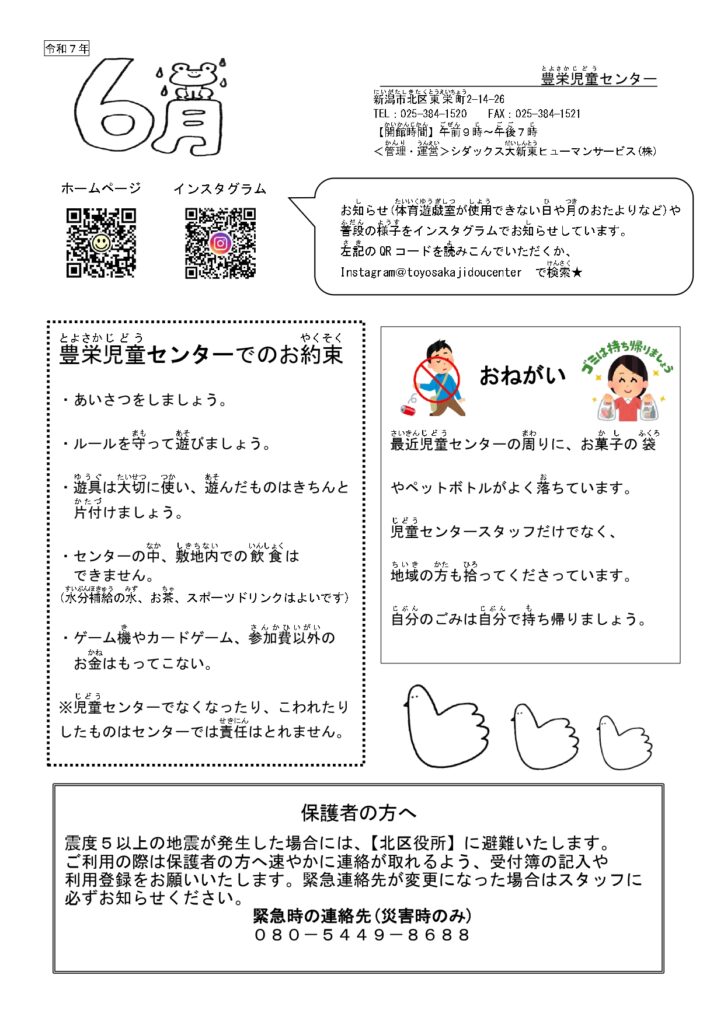 令和７年
6月
豊栄児童センター
新潟市北区東栄町2-14-26
TEL：025-384-1520　FAX：025-384-1521
【開館時間】午前９時～午後７時
＜管理・運営＞シダックス大新東ヒューマンサービス(株)
ホームページ　インスタグラム
お知らせ(体育遊戯室が使用できない日や月のおたよりなど)や
普段の様子をインスタグラムでお知らせしています。
左記のQRコードを読みこんでいただくか、
Instagram@toyosakajidoucenter　で検索★
豊栄児童センターでのお約束
・あいさつをしましょう。
・ルールを守って遊びましょう。
・遊具は大切に使い、遊んだものはきちんと
片付けましょう。
・センターの中、敷地内での飲食は
できません。
(水分補給の水、お茶、スポーツドリンクはよいです)
・ゲーム機やカードゲーム、参加費以外の
お金はもってこない。
※児童センターでなくなったり、こわれたり
したものはセンターでは責任はとれません。
おねがい
ゴミは持ち帰りましょう
最近児童センターの周りに、お菓子の袋
やペットボトルがよく落ちています。
児童センタースタッフだけでなく、
地域の方も拾ってくださっています。
自分のごみは自分で持ち帰りましょう。
保護者の方へ
震度５以上の地震が発生した場合には、【北区役所】に避難いたします。
ご利用の際は保護者の方へ速やかに連絡が取れるよう、受付簿の記入や
利用登録をお願いいたします。緊急連絡先が変更になった場合はスタッフに
必ずお知らせください。
緊急時の連絡先(災害時のみ)
０８０－５４４９－８６８８